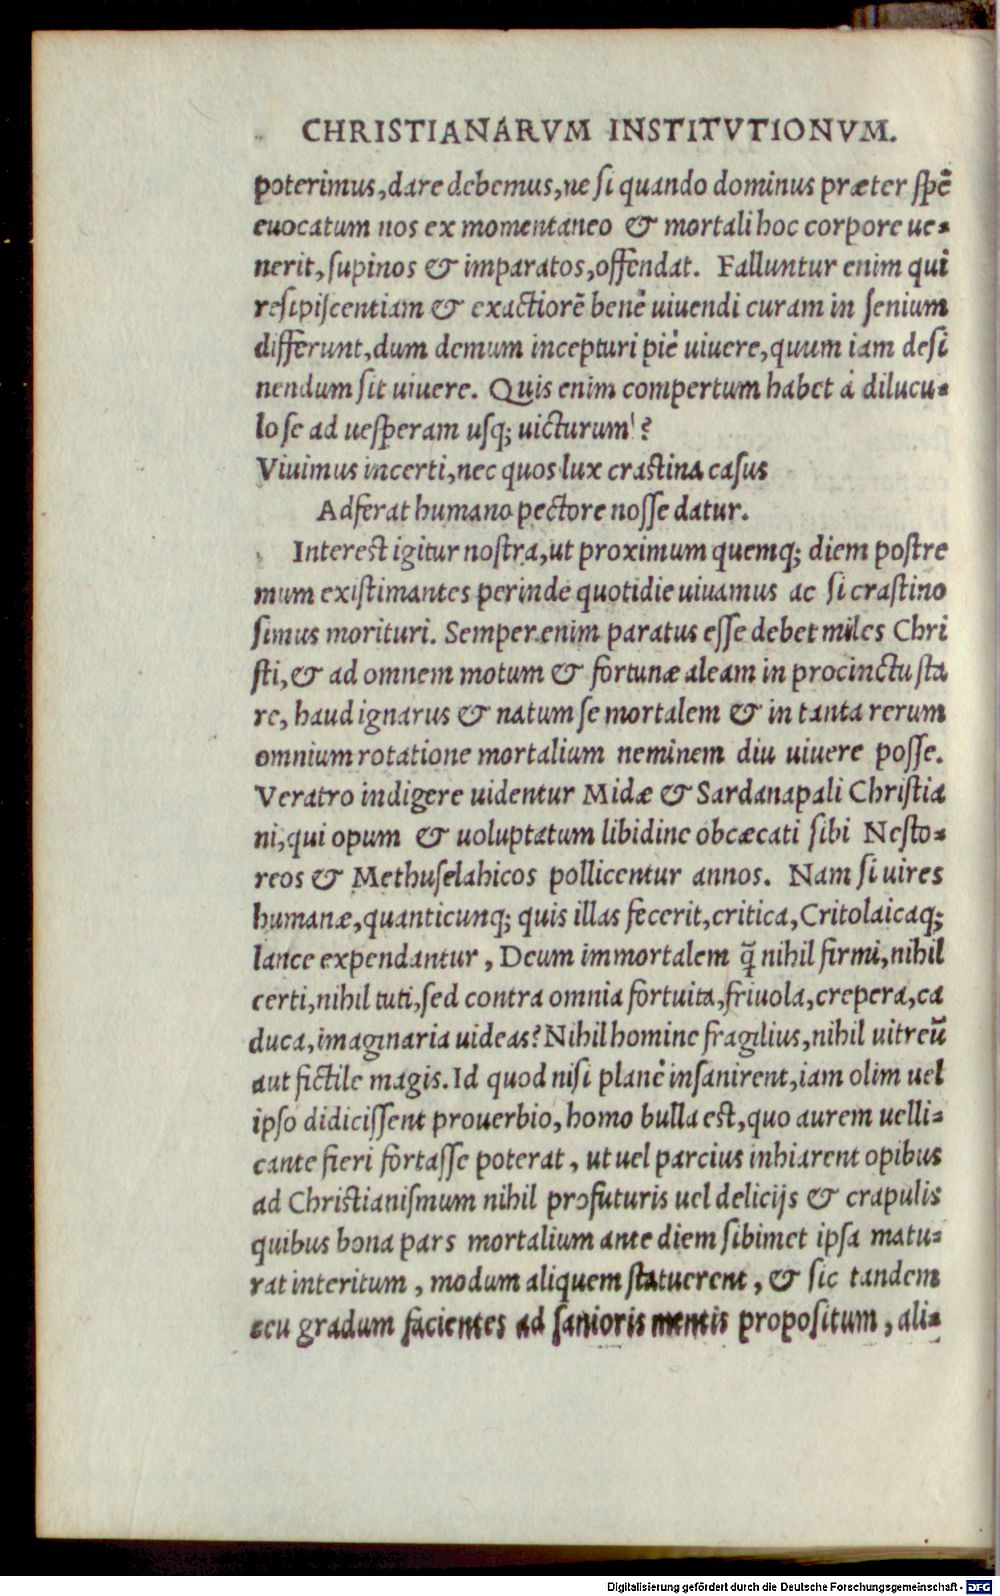 CHRISTIANARVM INSTITVTIONVM.
poterimus, dare debemus, ne si quando dominus præter spẽ
euocatum nos ex momentaneo & mortali hoc corpore ue-
nerit, supinos & imparatos, offendat. Falluntur enim qui
resipiscentiam & exactiorẽ benè uiuendi curam in senium
differunt, dum demum incepturi piè uiuere, quum iam desi
nendum sit uiuere. Quis enim compertum habet à dilucu-
lo se ad uesperam usq; uicturum?
Viuimus incerti, nec quos lux crastina casus
Adferat humano pectore nosse datur.
Interest igitur nostra, ut proximum quemq; diem postre
mum existimantes perinde quotidie uiuamus ac si crastino
simus morituri. Semper enim paratus esse debet miles Chri
sti, & ad omnem motum & fortunæ aleam in procinctu sta
re, haud ignarus & natum se mortalem & in tanta rerum
omnium rotatione mortalium neminem diu uiuere posse.
Veratro indigere uidentur Midæ & Sardanapali Christia
ni, qui opum & uoluptatum libidine obcæcati sibi Nesto-
reos & Methuselahicos pollicentur annos. Nam si uires
humanæ, quanticunq; quis illas fecerit, critica, Critolaicaq;
lance expendantur, Deum immortalem q̃ nihil firmi, nihil
certi, nihil tuti, sed contra omnia fortuita, friuola, crepera, ca
duca, imaginaria uideas? Nihil homine fragilius, nihil uitreũ
aut fictile magis. Id quod nisi planè insanirent, iam olim uel
ipso didicissent prouerbio, homo bulla est, quo aurem uelli-
cante fieri fortasse poterat, ut uel parcius inhiarent opibus
ad Christianismum nihil profuturis uel delicijs & crapulis
quibus bona pars mortalium ante diem sibimet ipsa matu-
rat interitum, modum aliquem statuerent, & sic tandem
ceu gradum facientes ad sanioris mentis propositum, ali-
Digitalisierung gefördert durch die Deutsche Forschungsgemeinschaft - DFG